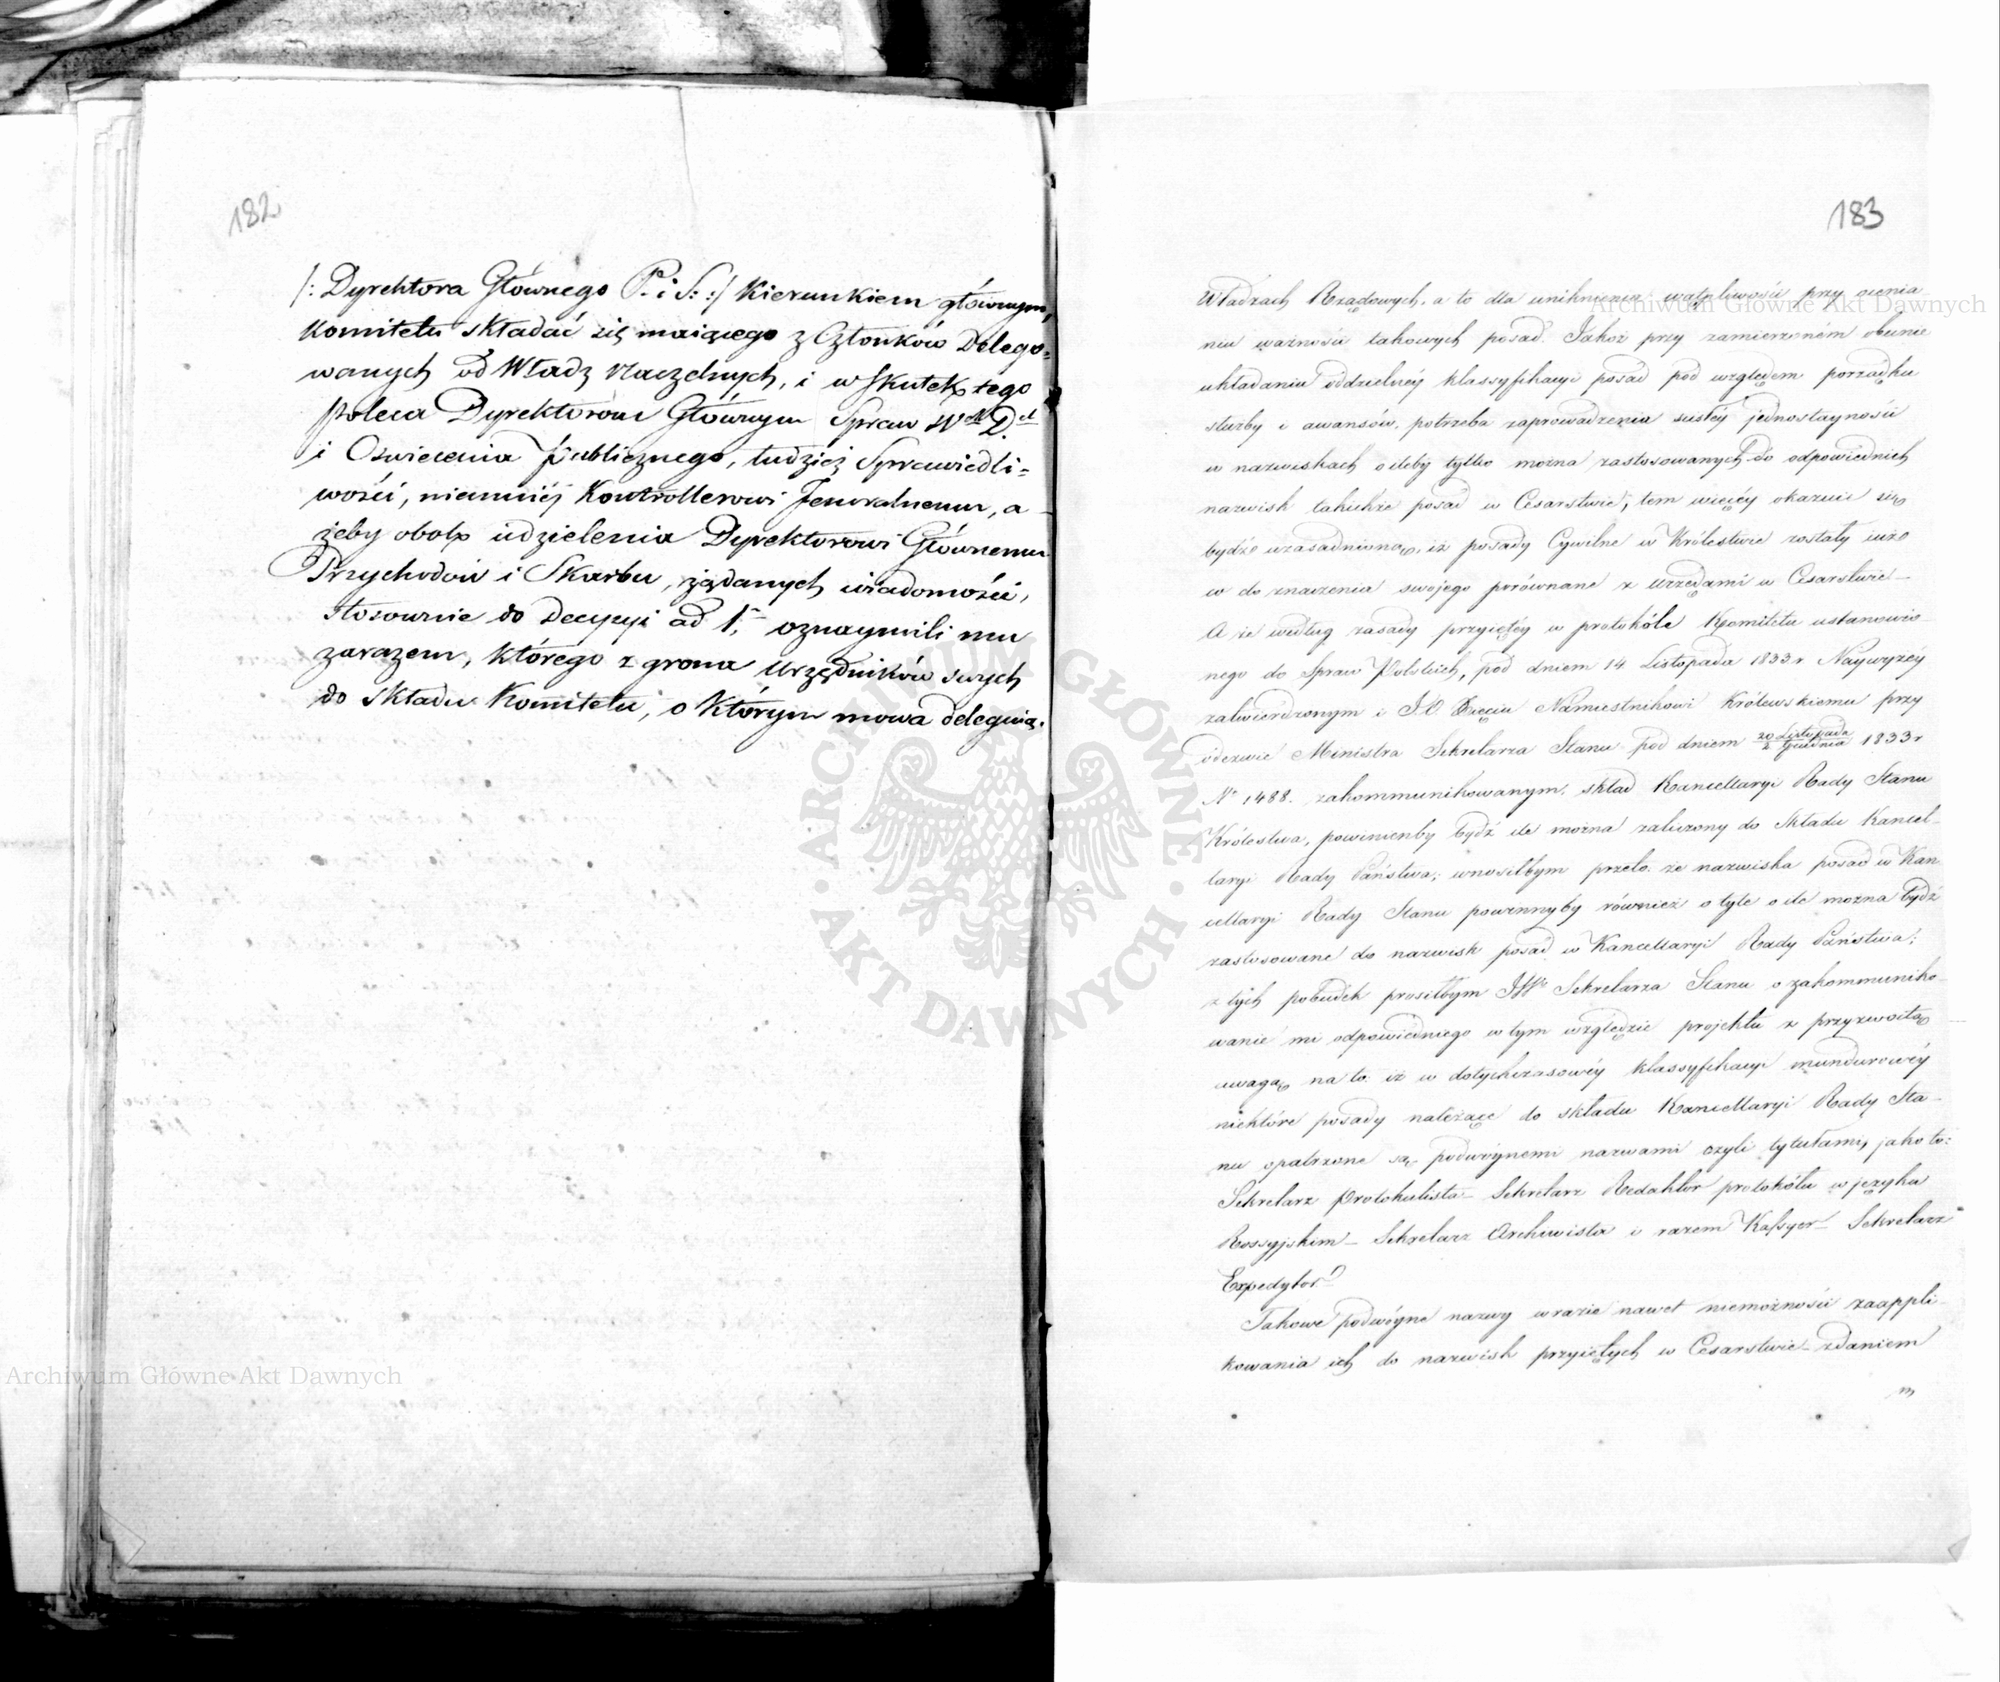 182
/: Dyrektora Głównego P. i S. :/ kierunkiem głównym,
Komitetu składać się maiącego z Członków Delego=
wanych od Władz Naczelnych, i w skutek tego
poleca Dyrektorom Głównym Spraw W. D.
i Oświecenia Publicznego, tudzież Sprawiedli=
wości, niemniéj Kontrollerowi Jeneralnemu, a
żeby obok udzielenia Dyrektorowi Głównemu
Przychodów i Skarbu, żądanych wiadomości,
stosownie do Decyzyi ad 1, oznaymili mu
zarazem, którego z grona Urzędników swych
do składu Komitetu, o którym mowa deleguią.
183
Władzach Rządowych, a to dla uniknienia wątpliwości przy ocenia
niu ważności takowych posad. Jakoż przy zamierzoném obecnie
układaniu oddzielnéy klassyfikacyi posad pod względem porządku
służby i awansów, potrzeba zaprowadzenia ścisłéy jednostayności
w nazwiskach o ileby tylko można zastosowanych do odpowiednich
nazwisk takichże posad w Cesarstwie, tem więcéy okazuie się
bydź uzasadnioną, iż posady Cywilne w Królestwie zostały iuż
co do znaczenia swojego porównane z urzędami w Cesarstwie —
A że według zasady przyiętéy w protokóle Komitetu ustanowio
nego do Spraw Polskich, pod dniem 14 Listopada 1833 r. Naywyżéy
zatwierdzonym i J.O. Xięciu Namiestnikowi Królewskiemu przy
odezwie Ministra Sekretarza Stanu pod dniem 20 Listopada / 2 Grudnia 1833 r
No 1488. zakommunikowanym, skład Kancellaryi Rady Stanu
Królestwa, powinienby bydź ile można zaliczony do składu Kancel-
laryi Rady Państwa; wnosiłbym przeto: że nazwiska posad w Kan
cellaryi Rady Stanu powinnyby również o tyle o ile można bydź
zastosowane do nazwisk posad w Kancellaryi Rady Państwa;
z tych pobudek prosiłbym JW Sekretarza Stanu o zakommuniko-
wanie mi odpowiedniego w tym względzie projektu z przyzwoitą
uwagą na to: iż w dotychczasowéy klassyfikacyi mundurowéy
niektóre posady należące do składu Kancellaryi Rady Sta-
nu opatrzone są podwóynemi nazwami czyli tytułami, jako to:
Sekretarz Protokulista — Sekretarz Redaktor protokółu w języku
Rossyjskim — Sekretarz Archiwista i razem Kassyer — Sekretarz
Expedytor.
Takowe podwóyne nazwy w razie nawet niemożności zaappli-
kowania ich do nazwisk przyiętych w Cesarstwie — zdaniem
m
Archiwum Główne Akt Dawnych
Archiwum Główne Akt Dawnych
ARCHIWUM GŁÓWNE
AKT DAWNYCH